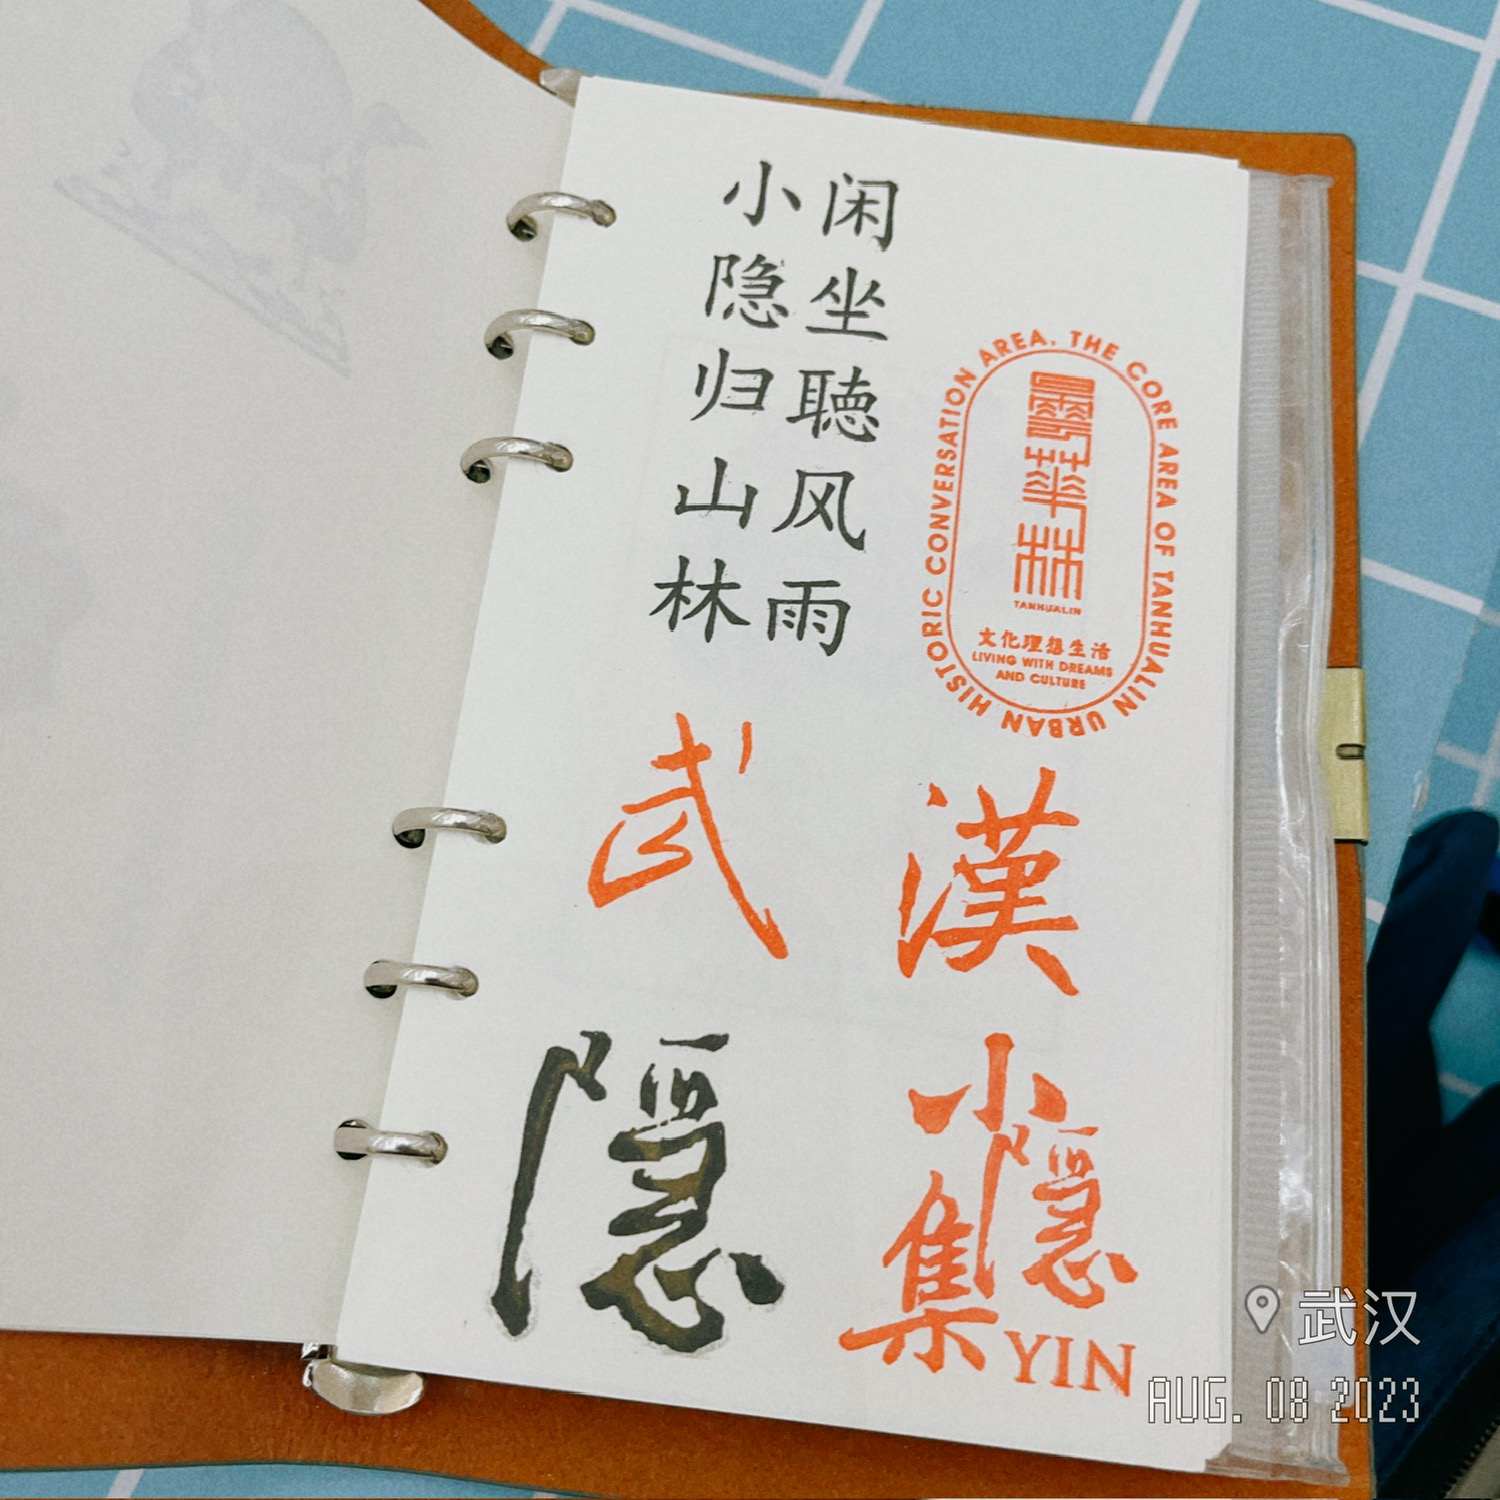 闲坐聴风雨
小隐归山林
THE CORE AREA OF TANHUALIN URBAN HISTORIC CONVERSATION AREA.
曇華林
TANHUALIN
文化理想生活
LIVING WITH DREAMS
AND CULTURE
武
漢
隱
小隱集
YIN
武汉
AUG. 08 2023